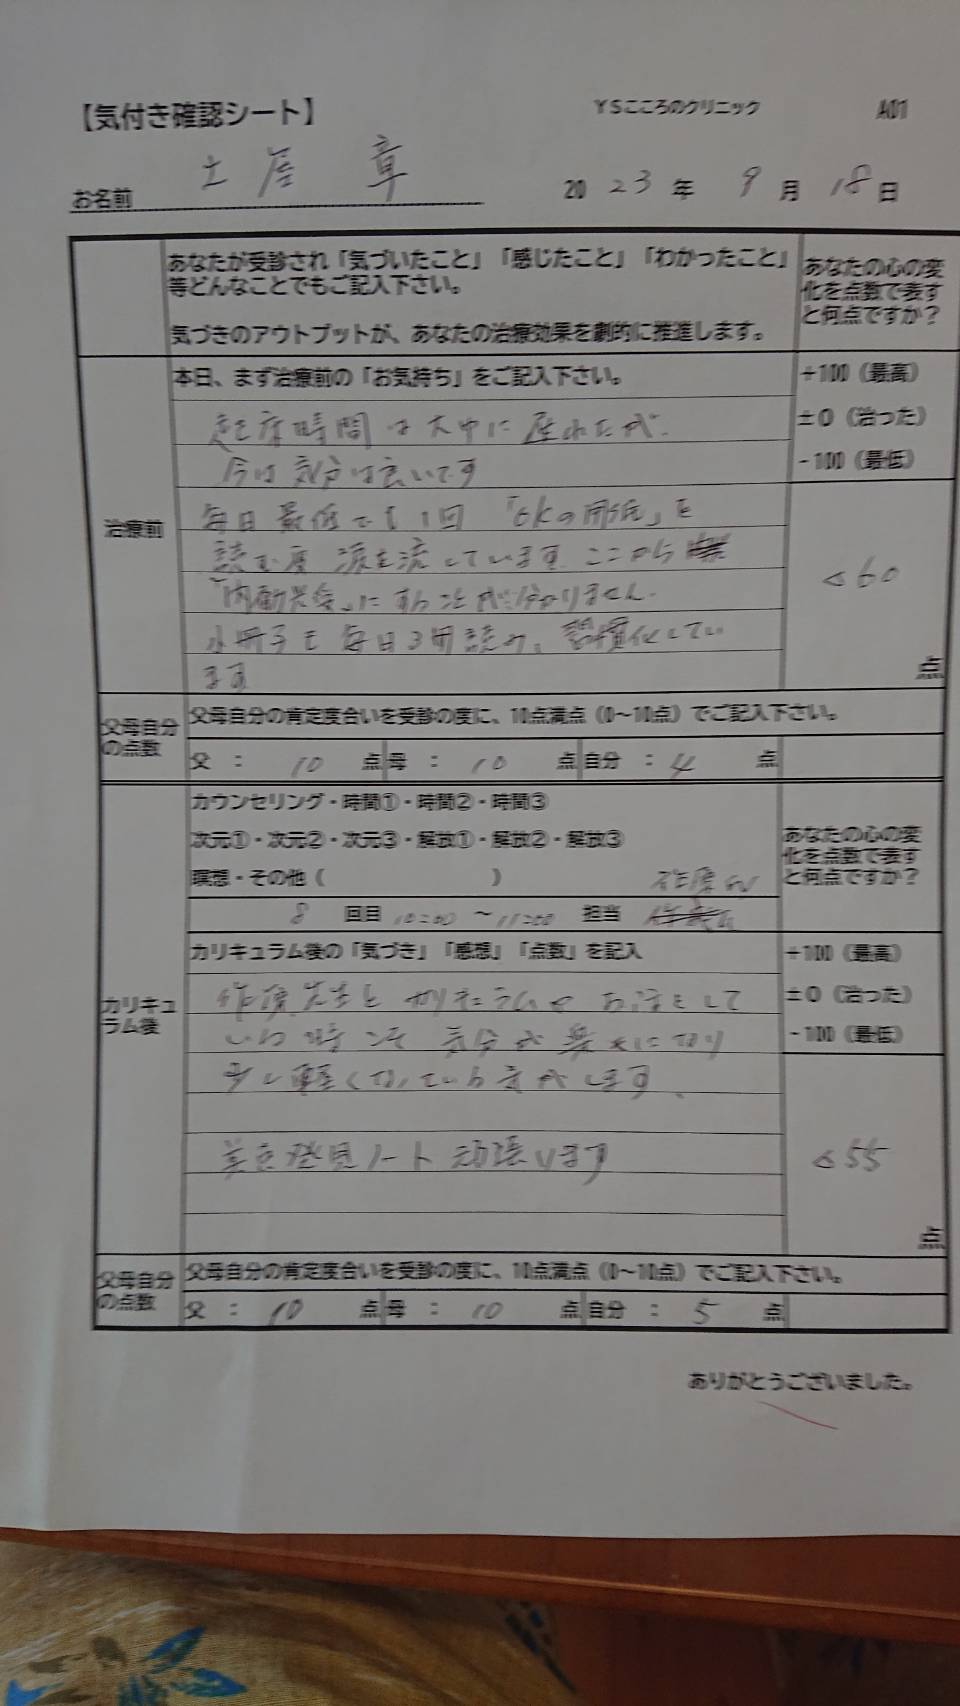 【気付き確認シート】 YSこころのクリニック A01
お名前 土居 章 2023年 9月 18日
あなたが受診され「気づいたこと」「感じたこと」「わかったこと」
等どんなことでもご記入下さい。
気づきのアウトプットが、あなたの治療効果を劇的に推進します。
あなたの心の変
化を点数で表す
と何点ですか？
治療前
本日、まず治療前の「お気持ち」をご記入下さい。
起床時間は大巾に遅れたが、
今は気分は良いです
毎日最低でも1回「OKの用紙」を
読む度涙を流しています ここから
「内動思考」にすることが分かりません.
小冊子も毎日3冊読み、習慣化してい
ます
+100（最高）
±0（治った）
-100（最低）
60
点
父母自分
の点数
父母自分の肯定度合いを受診の度に、10点満点（0～10点）でご記入下さい。
父 ： 10 点 母 ： 10 点 自分 ： 4 点
カリキュ
ラム後
カウンセリング・時間①・時間②・時間③
次元①・次元②・次元③・解放①・解放②・解放③
瞑想・その他（ ）
8 回目 10:00 ～11:00 担当
あなたの心の変
化を点数で表す
と何点ですか？
カリキュラム後の「気づき」「感想」「点数」を記入
先生とカリキュラムやお話をして
いる時こそ気分が楽になり
少し軽くなっている気がします、
美点発見ノート頑張ります
+100（最高）
±0（治った）
-100（最低）
55
点
父母自分
の点数
父母自分の肯定度合いを受診の度に、10点満点（0～10点）でご記入下さい。
父 ： 10 点 母 ： 10 点 自分 ： 5 点
ありがとうございました。